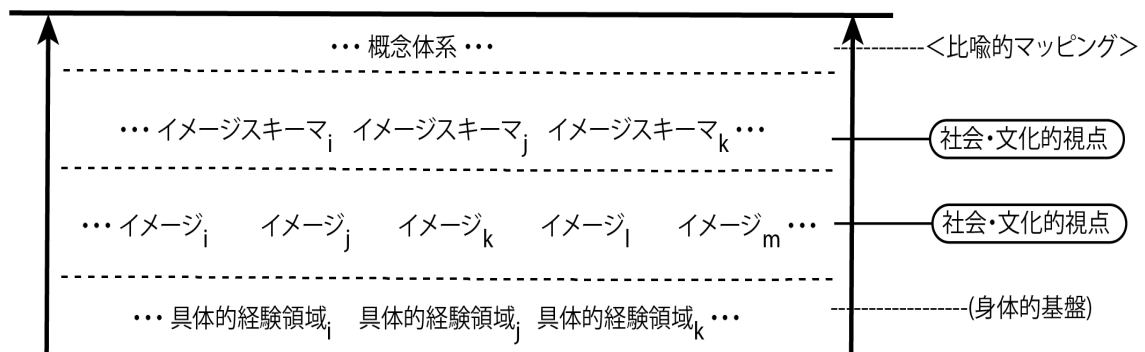 … 概念体系 …
<比喩的マッピング>
… イメージスキーマi イメージスキーマj イメージスキーマk …
社会・文化的視点
… イメージi イメージj イメージk イメージl イメージm …
社会・文化的視点
… 具体的経験領域i 具体的経験領域j 具体的経験領域k …
(身体的基盤)